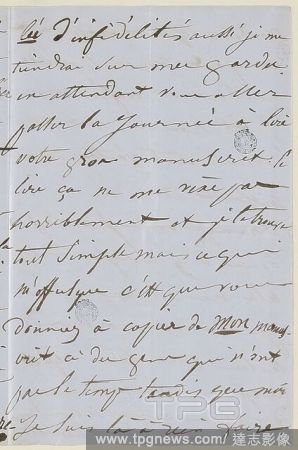 lié d'infidélités aussi je me
tiendrai sur mes gardes
en attendant vous allez
passer la journée à lire
votre gros manuscrit. le
lire ça ne me vexe pas
horriblement et je le trouve
tout simple mais ce qui
m'offusque c'est que vous
donniez à copier de mon manus
crit à des gens qui n'ont
pas le temps tandis que moi
je suis là à rien faire
TPG
www.tpgnews.com / 達志影像